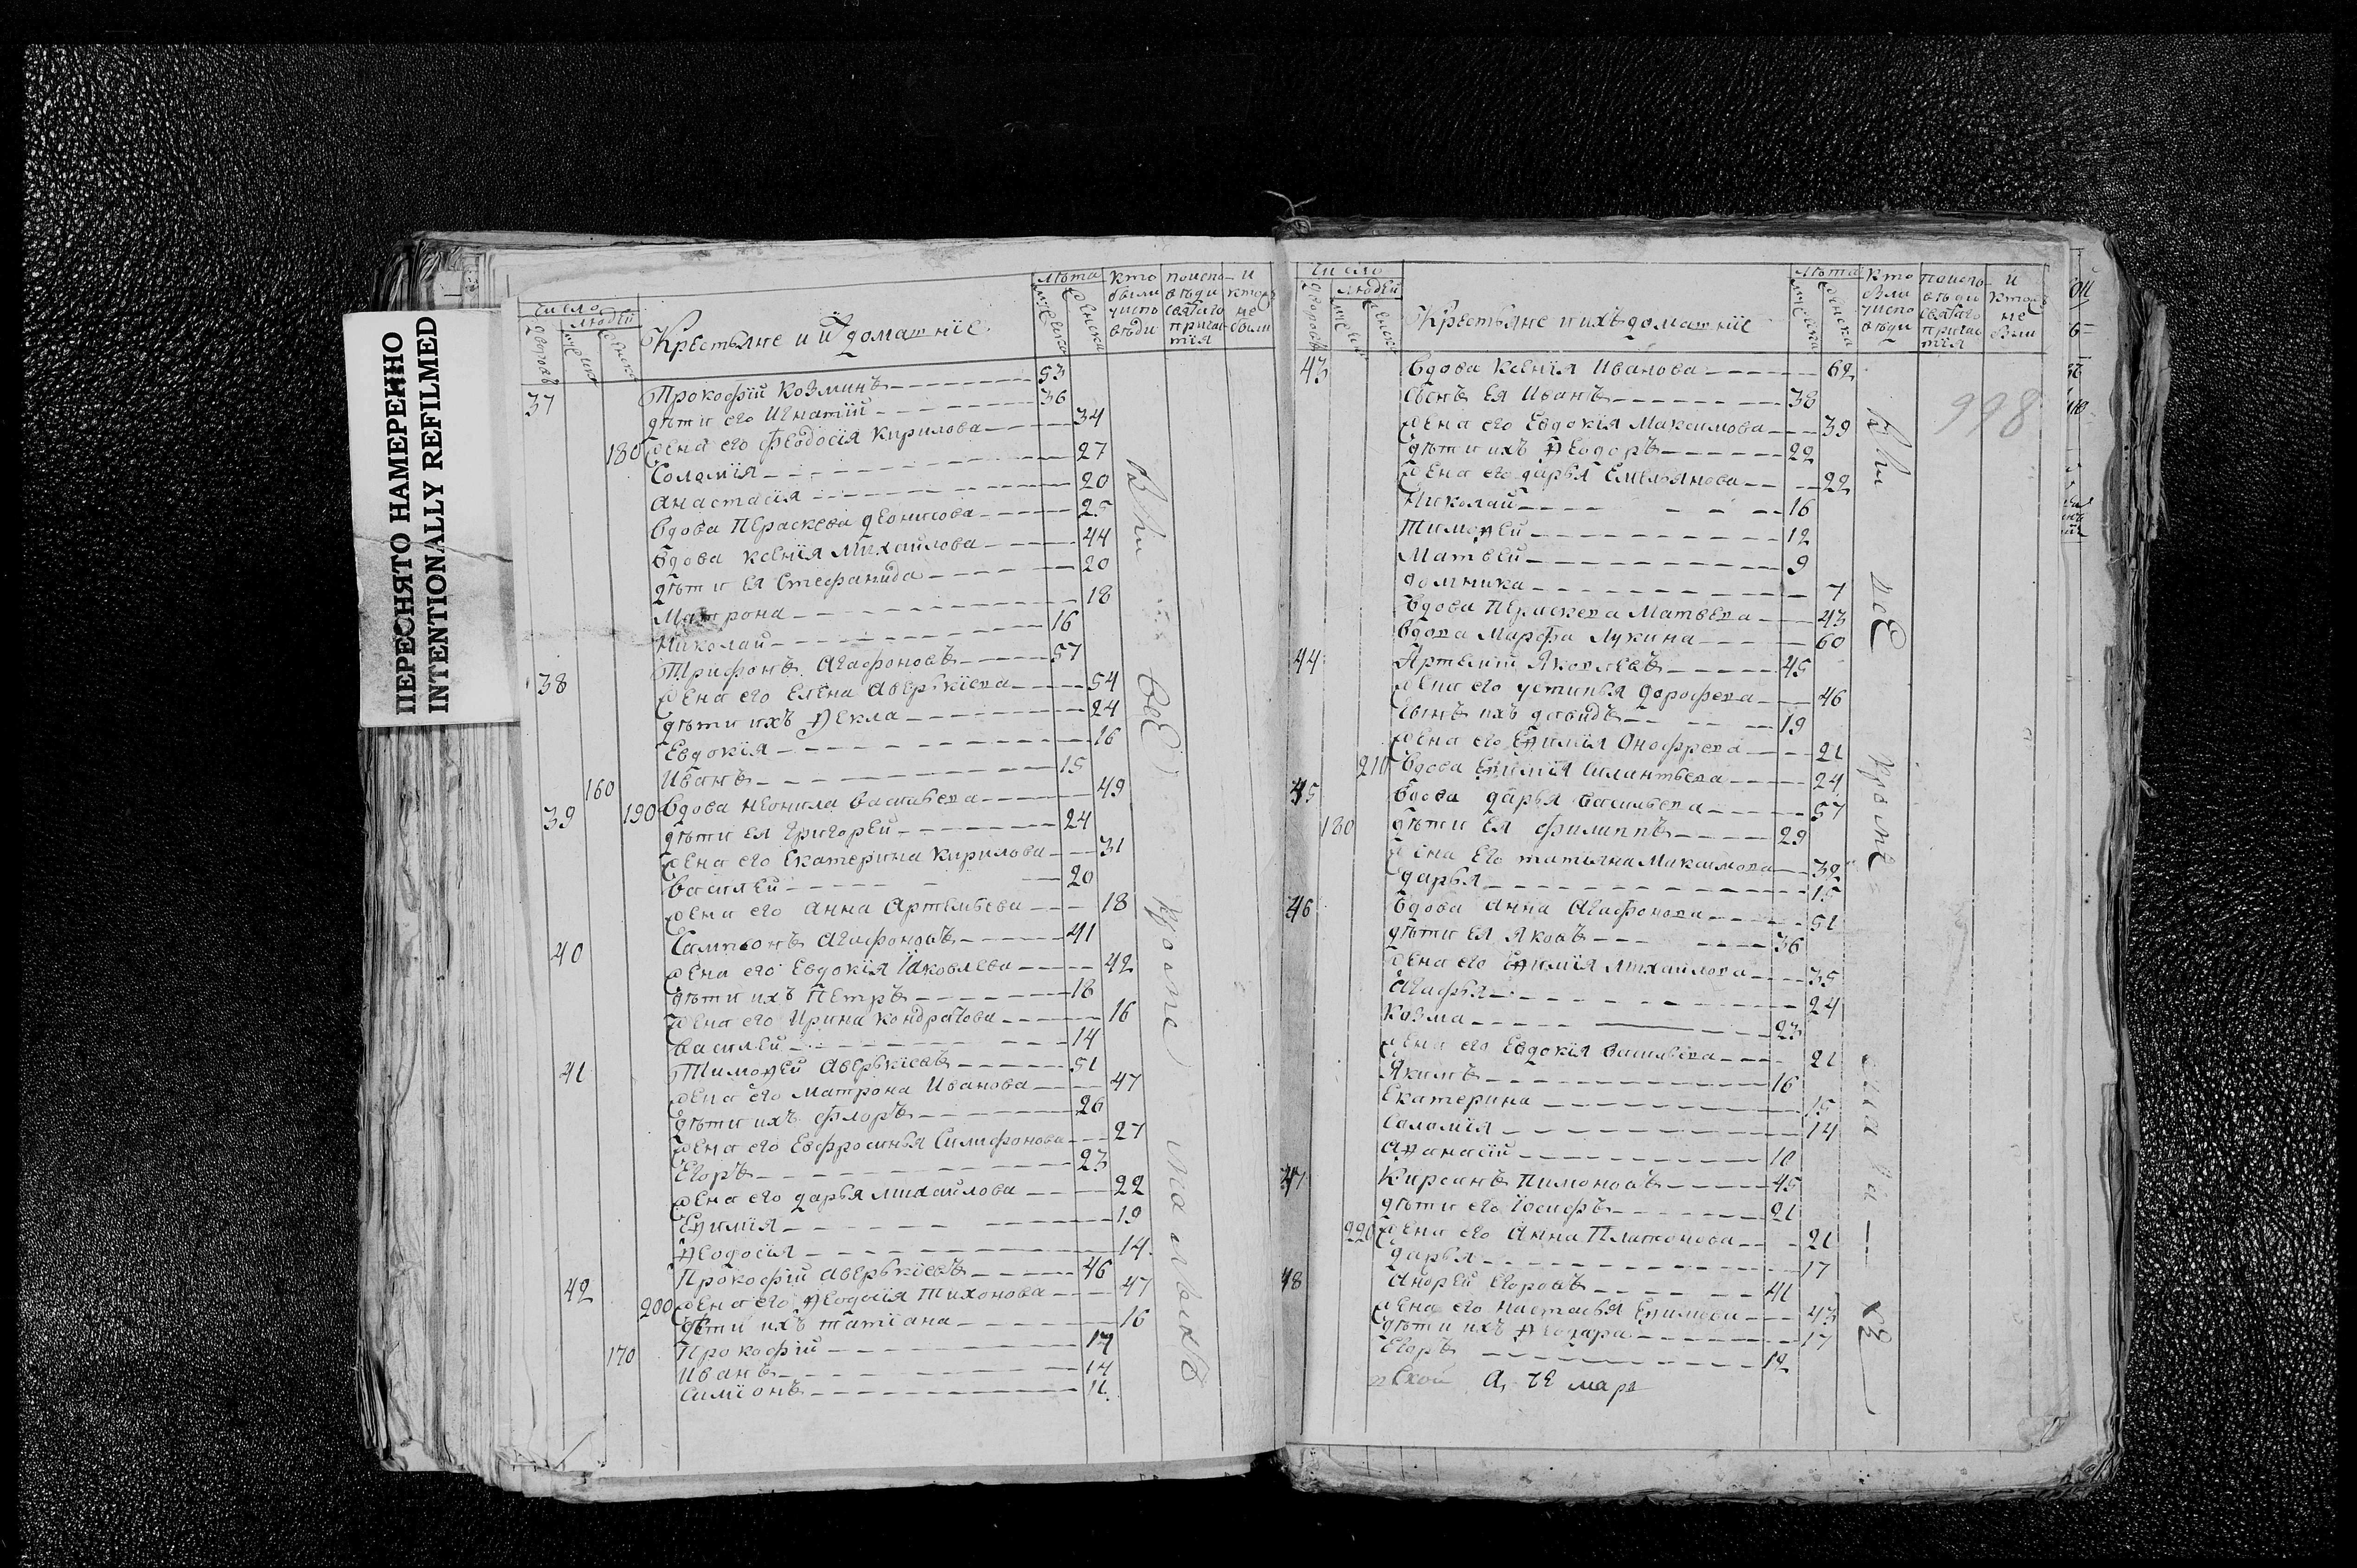 ПЕРЕСНЯТО НАМЕРЕННО
INTENTIONALLY REFILMED
число
людей
дворовъ
мужеска
женска
Крестьяне и их домашнїе
лѣта
мужеска
женска
кто были у исповѣди
и святаго причастїя
и кто не были
37 Прокофїй Козминъ 53
дѣти его Игнатїй 36
180 жена его Феодосїя Кирилова 34
Соломїя 27
Анастасїя 20
вдова Параскева Деонисова 25
вдова Ксенїя Михайлова 44
дѣти ея Стефанида 20
Матрона 18
Николай 16
38 Трифонъ Агафоновъ 57
жена его Елена Аверькїева 54
дѣти ихъ Ѳекла 24
Евдокїя 16
Иванъ 15
39 160 190 вдова Неонила Васильева 49
дѣти ея Григорей 24
жена его Екатерина Кирилова 31
Василей 20
жена его Анна Артемьева 18
40 Сампсонъ Агафоновъ 41
жена его Евдокїя Їаковлева 42
дѣти ихъ Петръ 18
жена его Ирина Кондратова 16
Василей 14
41 Тимоѳей Аверькїевъ 51
жена его Матрона Иванова 47
дѣти ихъ Флоръ 26
жена его Евфросинья Силифонова 27
Егоръ 23
жена его Дарья Михайлова 22
Еѳимїя 19
Ѳеодосїя 14
42 Прокофїй Аверькїевъ 46
200 жена его Ѳеодосїя Тихонова 47
дѣти ихъ Татїана 16
170 Прокофїй 14
Иванъ 14
Симїонъ 11
Вси
всѣ
кромѣ
малыхъ
число
людей
дворовъ
мужеска
женска
Крестьяне и ихъ домашнїе
лѣта
мужеска
женска
кто были у исповѣди
и святаго причастїя
и кто не были
998
43 вдова Ксенїя Иванова 62
сынъ ея Иванъ 38
жена его Евдокїя Максимова 39
дѣти ихъ Ѳеодоръ 22
жена его Дарья Емельянова 22
Николай 16
Тимоѳей 12
Матвей 9
Домника 7
вдова Параскева Матвева 43
вдова Марфа Лукина 60
44 Артемий Яковлевъ 45
жена его Устинья Дорофева 46
сынъ ихъ Давидъ 19
жена его Еѳимїя Онофрева 21
210 вдова Еѳимїя Силантьева 24
45 вдова Дарья Васильева 57
180 дѣти ея Филиппъ 29
жена его Татїяна Максимова 32
Дарья 15
46 вдова Анна Агафонова 51
дѣти ея Яковъ 36
жена его Еѳимїя Михайлова 35
Агафья 24
Козма 23
жена его Евдокїя Васильева 21
Якимъ 16
Екатерина 15
Соломїя 14
Аѳанасїй 10
47 Кирсанъ Пимоновъ 45
дѣти его Їосифъ 21
220 жена его Анна Платонова 21
Дарья 17
48 Андрей Егоровъ 41
жена его Настасья Еѳимова 43
дѣти ихъ 17
Егоръ 12
Вси
всѣ
кромѣ